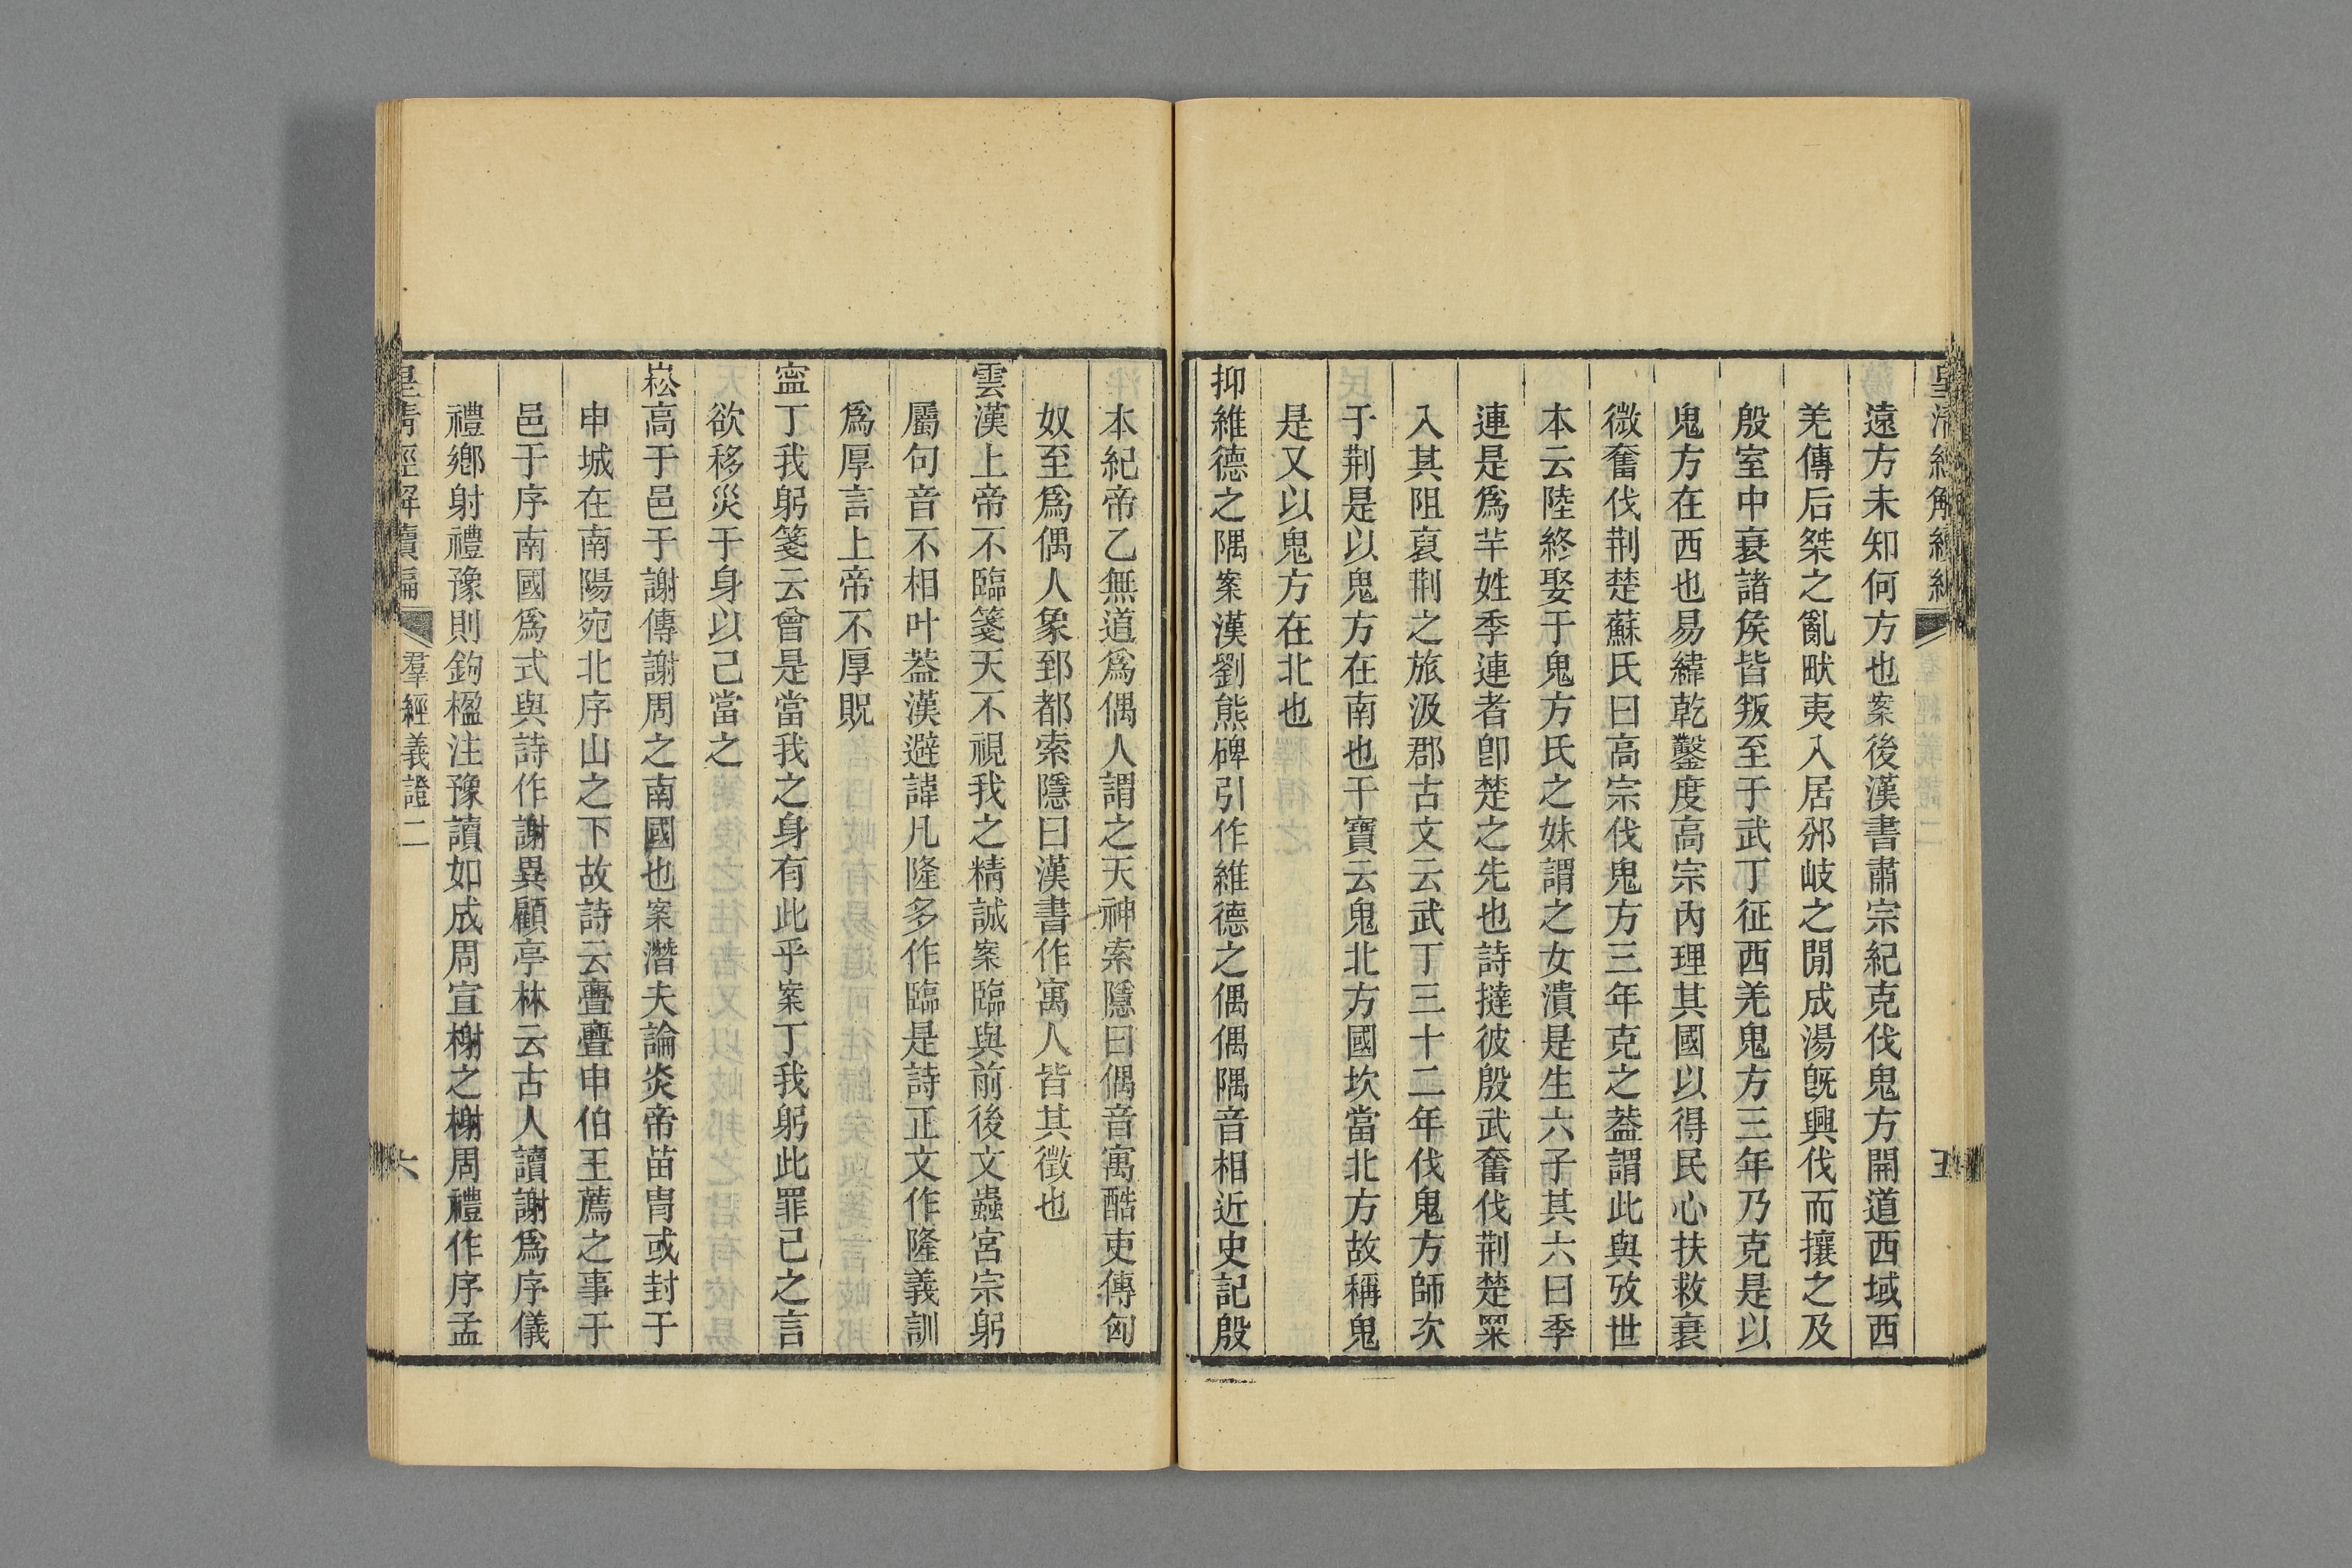 皇清經解續編
羣經義證二
五
遠方未知何方也案後漢書肅宗紀克伐鬼方開道西域西
羌傳后桀之亂畎夷入居邠岐之閒成湯旣興伐而攘之及
殷室中衰諸矦皆叛至于武丁征西羌鬼方三年乃克是以
鬼方在西也易緯乾鑿度高宗內理其國以得民心扶救衰
微奮伐荆楚蘇氏曰高宗伐鬼方三年克之葢謂此與攷世
本云陸終娶于鬼方氏之妹謂之女潰是生六子其六曰季
連是爲羋姓季連者卽楚之先也詩撻彼殷武奮伐荆楚冞
入其阻裒荆之旅汲郡古文云武丁三十二年伐鬼方師次
于荆是以鬼方在南也干寶云鬼北方國坎當北方故稱鬼
是又以鬼方在北也
抑維德之隅案漢劉熊碑引作維德之偶偶隅音相近史記殷
本紀帝乙無道爲偶人謂之天神索隱曰偶音寓酷吏傳匈
奴至爲偶人象郅都索隱曰漢書作寓人皆其徵也
雲漢上帝不臨箋天不視我之精誠案臨與前後文蟲宮宗躬
屬句音不相叶葢漢避諱凡隆多作臨是詩正文作隆義訓
爲厚言上帝不厚貺
寍丁我躬箋云曾是當我之身有此乎案丁我躬此罪己之言
欲移災于身以己當之
崧高于邑于謝傳謝周之南國也案潛夫論炎帝苗冑或封于
申城在南陽宛北序山之下故詩云亹亹申伯王薦之事于
邑于序南國爲式與詩作謝異顧亭林云古人讀謝爲序儀
禮鄉射禮豫則鉤楹注豫讀如成周宣榭之榭周禮作序孟
皇清經解續編
羣經義證二
六